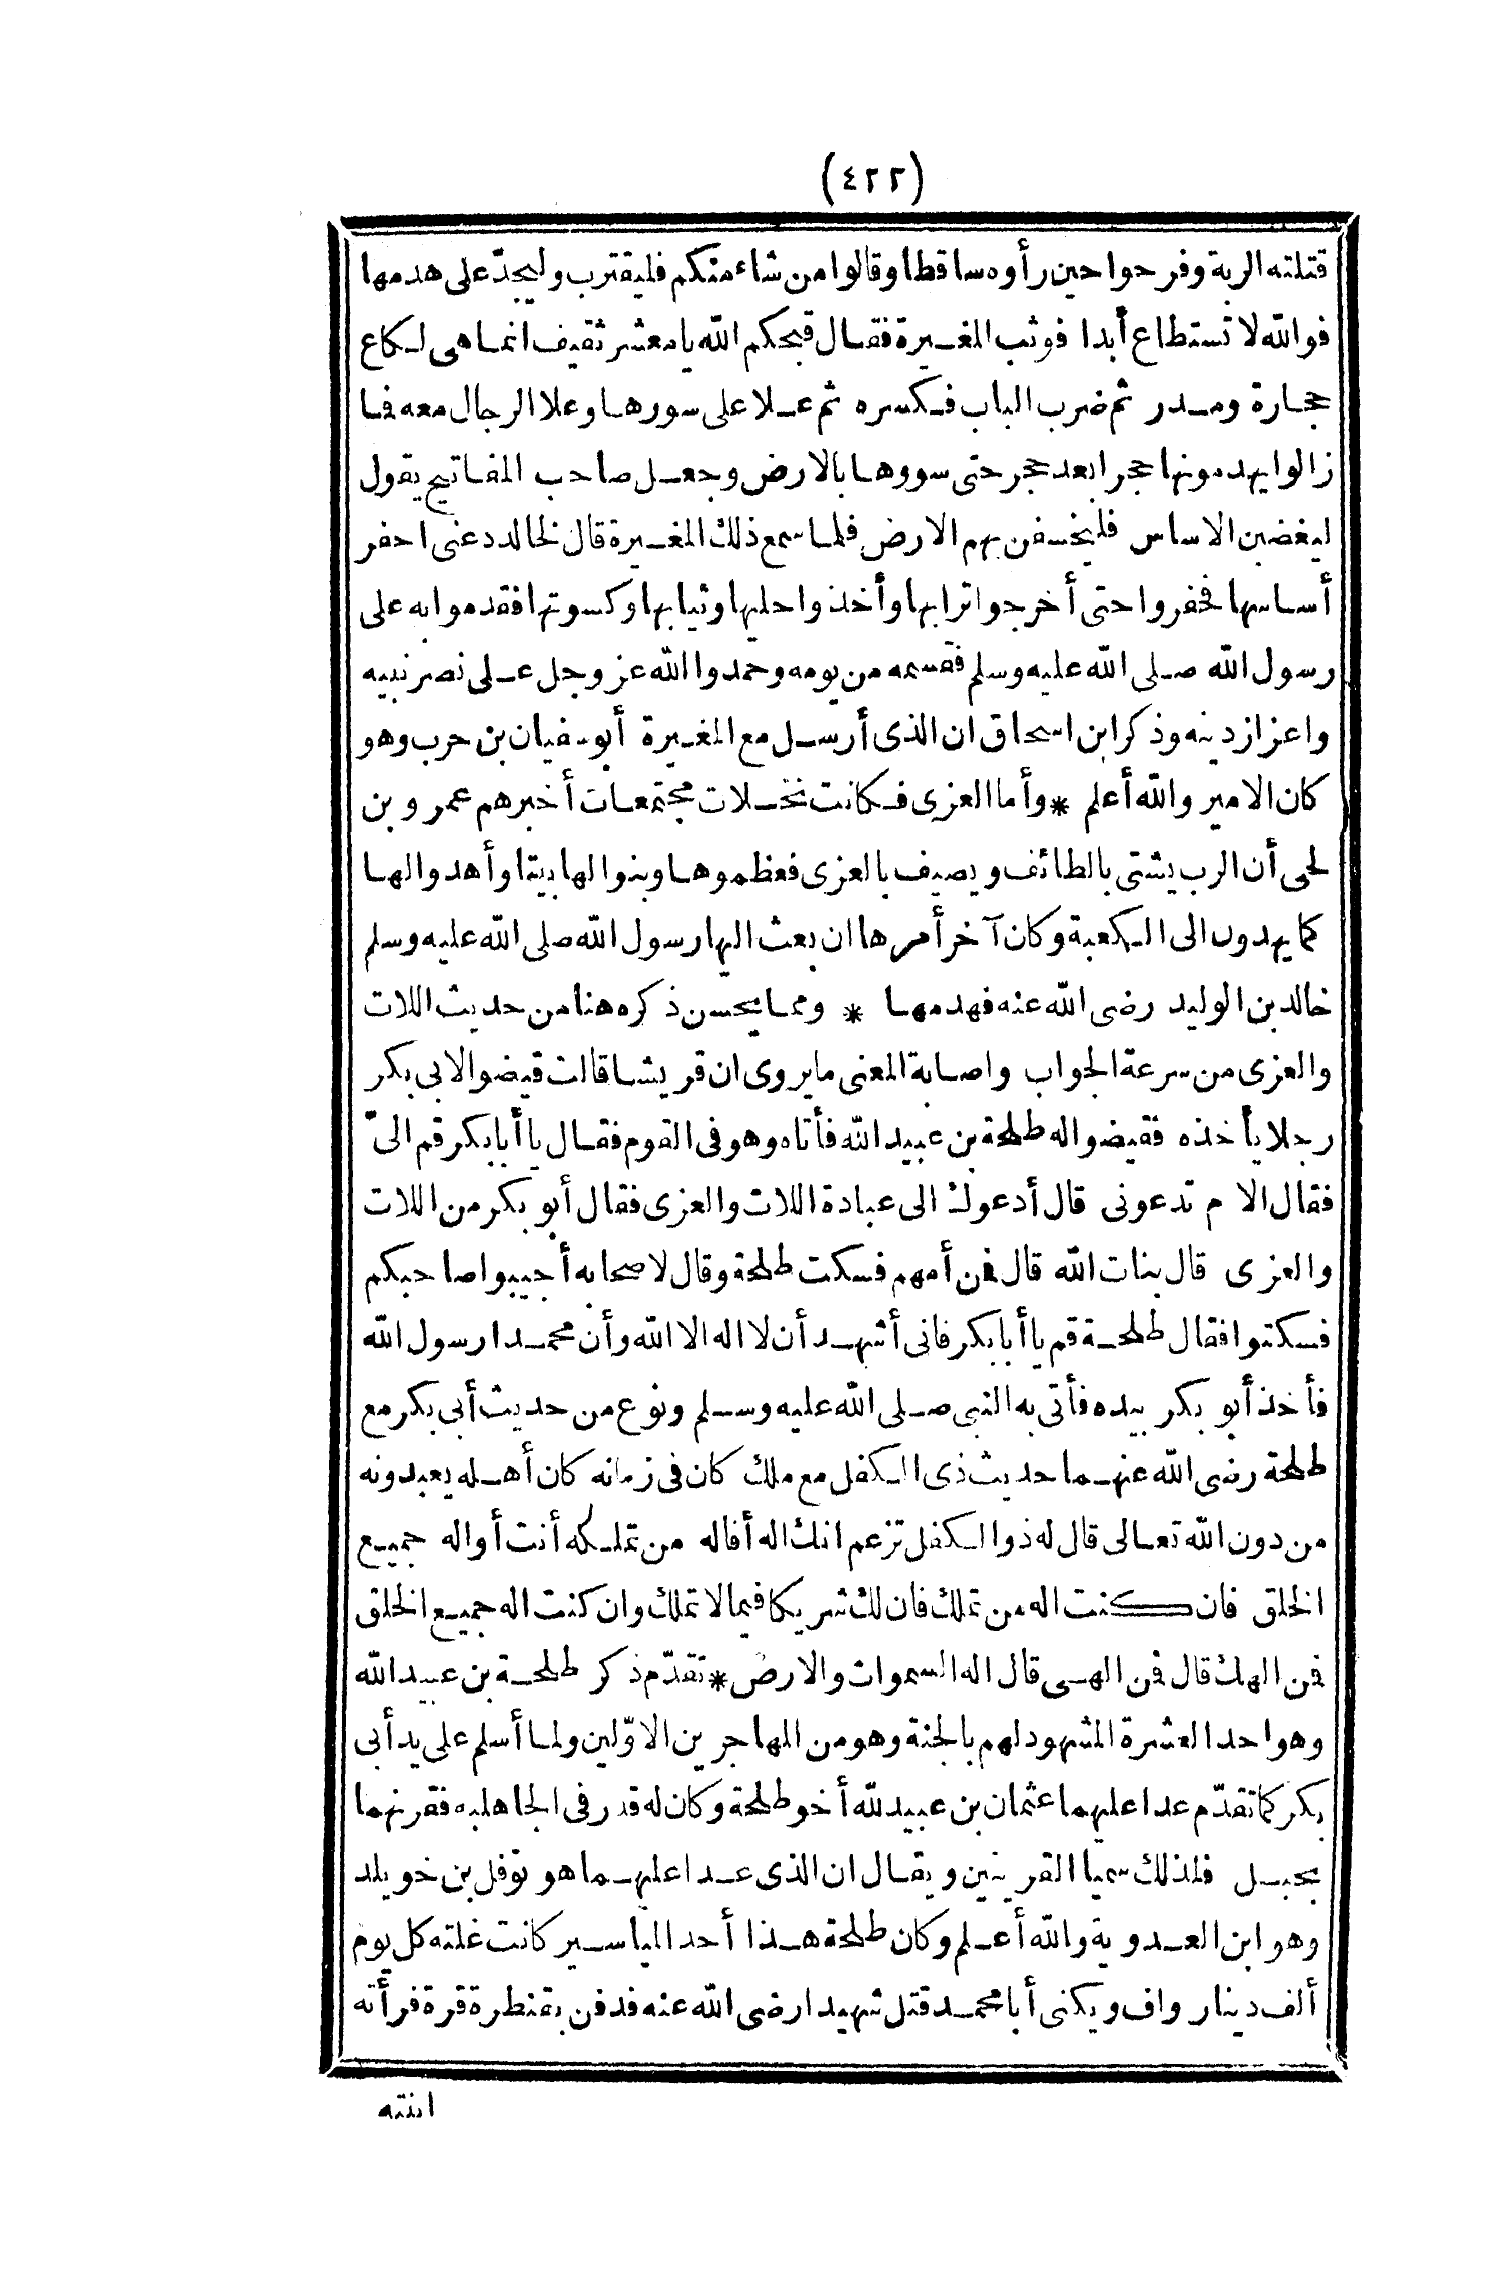 (٤٢٢)
قتلته الربة وفرحوا حين رأوه ساقطا وقالوا من شاء منكم فليقترب وليجدّ على هدمها
فوالله لا تستطاع أبدا فوثب المغيرة فقال قبحكم الله يا معشر ثقيف انما هى لكاع
حجارة ومدر ثم ضرب الباب فكسره ثم علا على سورها وعلا الرجال معه فما
زالوا يهدمونها حجرا بعد حجر حتى سووها بالارض وجعل صاحب المفاتيح يقول
ليغضبن الاساس فليخسفن بهم الارض فلما سمع ذلك المغيرة قال لخالد دعنى احفر
أساسها فحفروا حتى أخرجوا ترابها وأخذوا حليها وثيابها وكسوتها فقدموا به على
رسول الله صلى الله عليه وسلم فقسمه من يومه وحمدوا الله عز وجل على نصر نبيه
واعزاز دينه وذكر ابن اسحاق ان الذى أرسل مع المغيرة أبو سفيان بن حرب وهو
كان الامير والله أعلم * وأما العزى فكانت نخلات مجتمعات أخبرهم عمرو بن
لحى أن الرب يشتى بالطائف ويصيف بالعزى فعظموها وبنوا لها بيتا وأهدوا لها
كما يهدون الى الكعبة وكان آخر أمرها ان بعث اليها رسول الله صلى الله عليه وسلم
خالد بن الوليد رضى الله عنه فهدمها * ومما يحسن ذكره هنا من حديث اللات
والعزى من سرعة الجواب واصابة المعنى ما يروى ان قريشا قالت قيضوا لابى بكر
رجلا يأخذه فقيضوا له طلحة بن عبيد الله فأتاه وهو فى القوم فقال يا أبا بكر قم الىّ
فقال الا م تدعونى قال أدعوك الى عبادة اللات والعزى فقال أبو بكر من اللات
والعزى قال بنات الله قال فمن أمهم فسكت طلحة وقال لاصحابه أجيبوا صاحبكم
فسكتوا فقال طلحة قم يا أبا بكر فانى أشهد أن لا اله الا الله وأن محمدا رسول الله
فأخذ أبو بكر بيده فأتى به النبى صلى الله عليه وسلم ونوع من حديث أبى بكر مع
طلحة رضى الله عنهما حديث ذى الكفل مع ملك كان فى زمانه كان أهله يعبدونه
من دون الله تعالى قال له ذو الكفل تزعم انك اله أفاله من تملكه أنت أو اله جميع
الخلق فان كنت اله من تملك فان لك شريكا فيما لا تملك وان كنت اله جميع الخلق
فمن الهك قال فمن الهى قال اله السموات والارض * تقدّم ذكر طلحة بن عبيد الله
وهو احد العشرة المشهود لهم بالجنة وهو من المهاجرين الاوّلين ولما أسلم على يد أبى
بكر كما تقدّم عدا عليهما عثمان بن عبيد لله أخو طلحة وكان له قدر فى الجاهليه فقرنهما
بحبل فلذلك سميا القرينين ويقال ان الذى عدا عليهما هو نوفل بن خويلد
وهو ابن العدوية والله أعلم وكان طلحة هذا أحد المياسير كانت غلته كل يوم
ألف دينار واف ويكنى أبا محمد قتل شهيدا رضى الله عنه فدفن بقنطرة قرة فرأته
ابنته